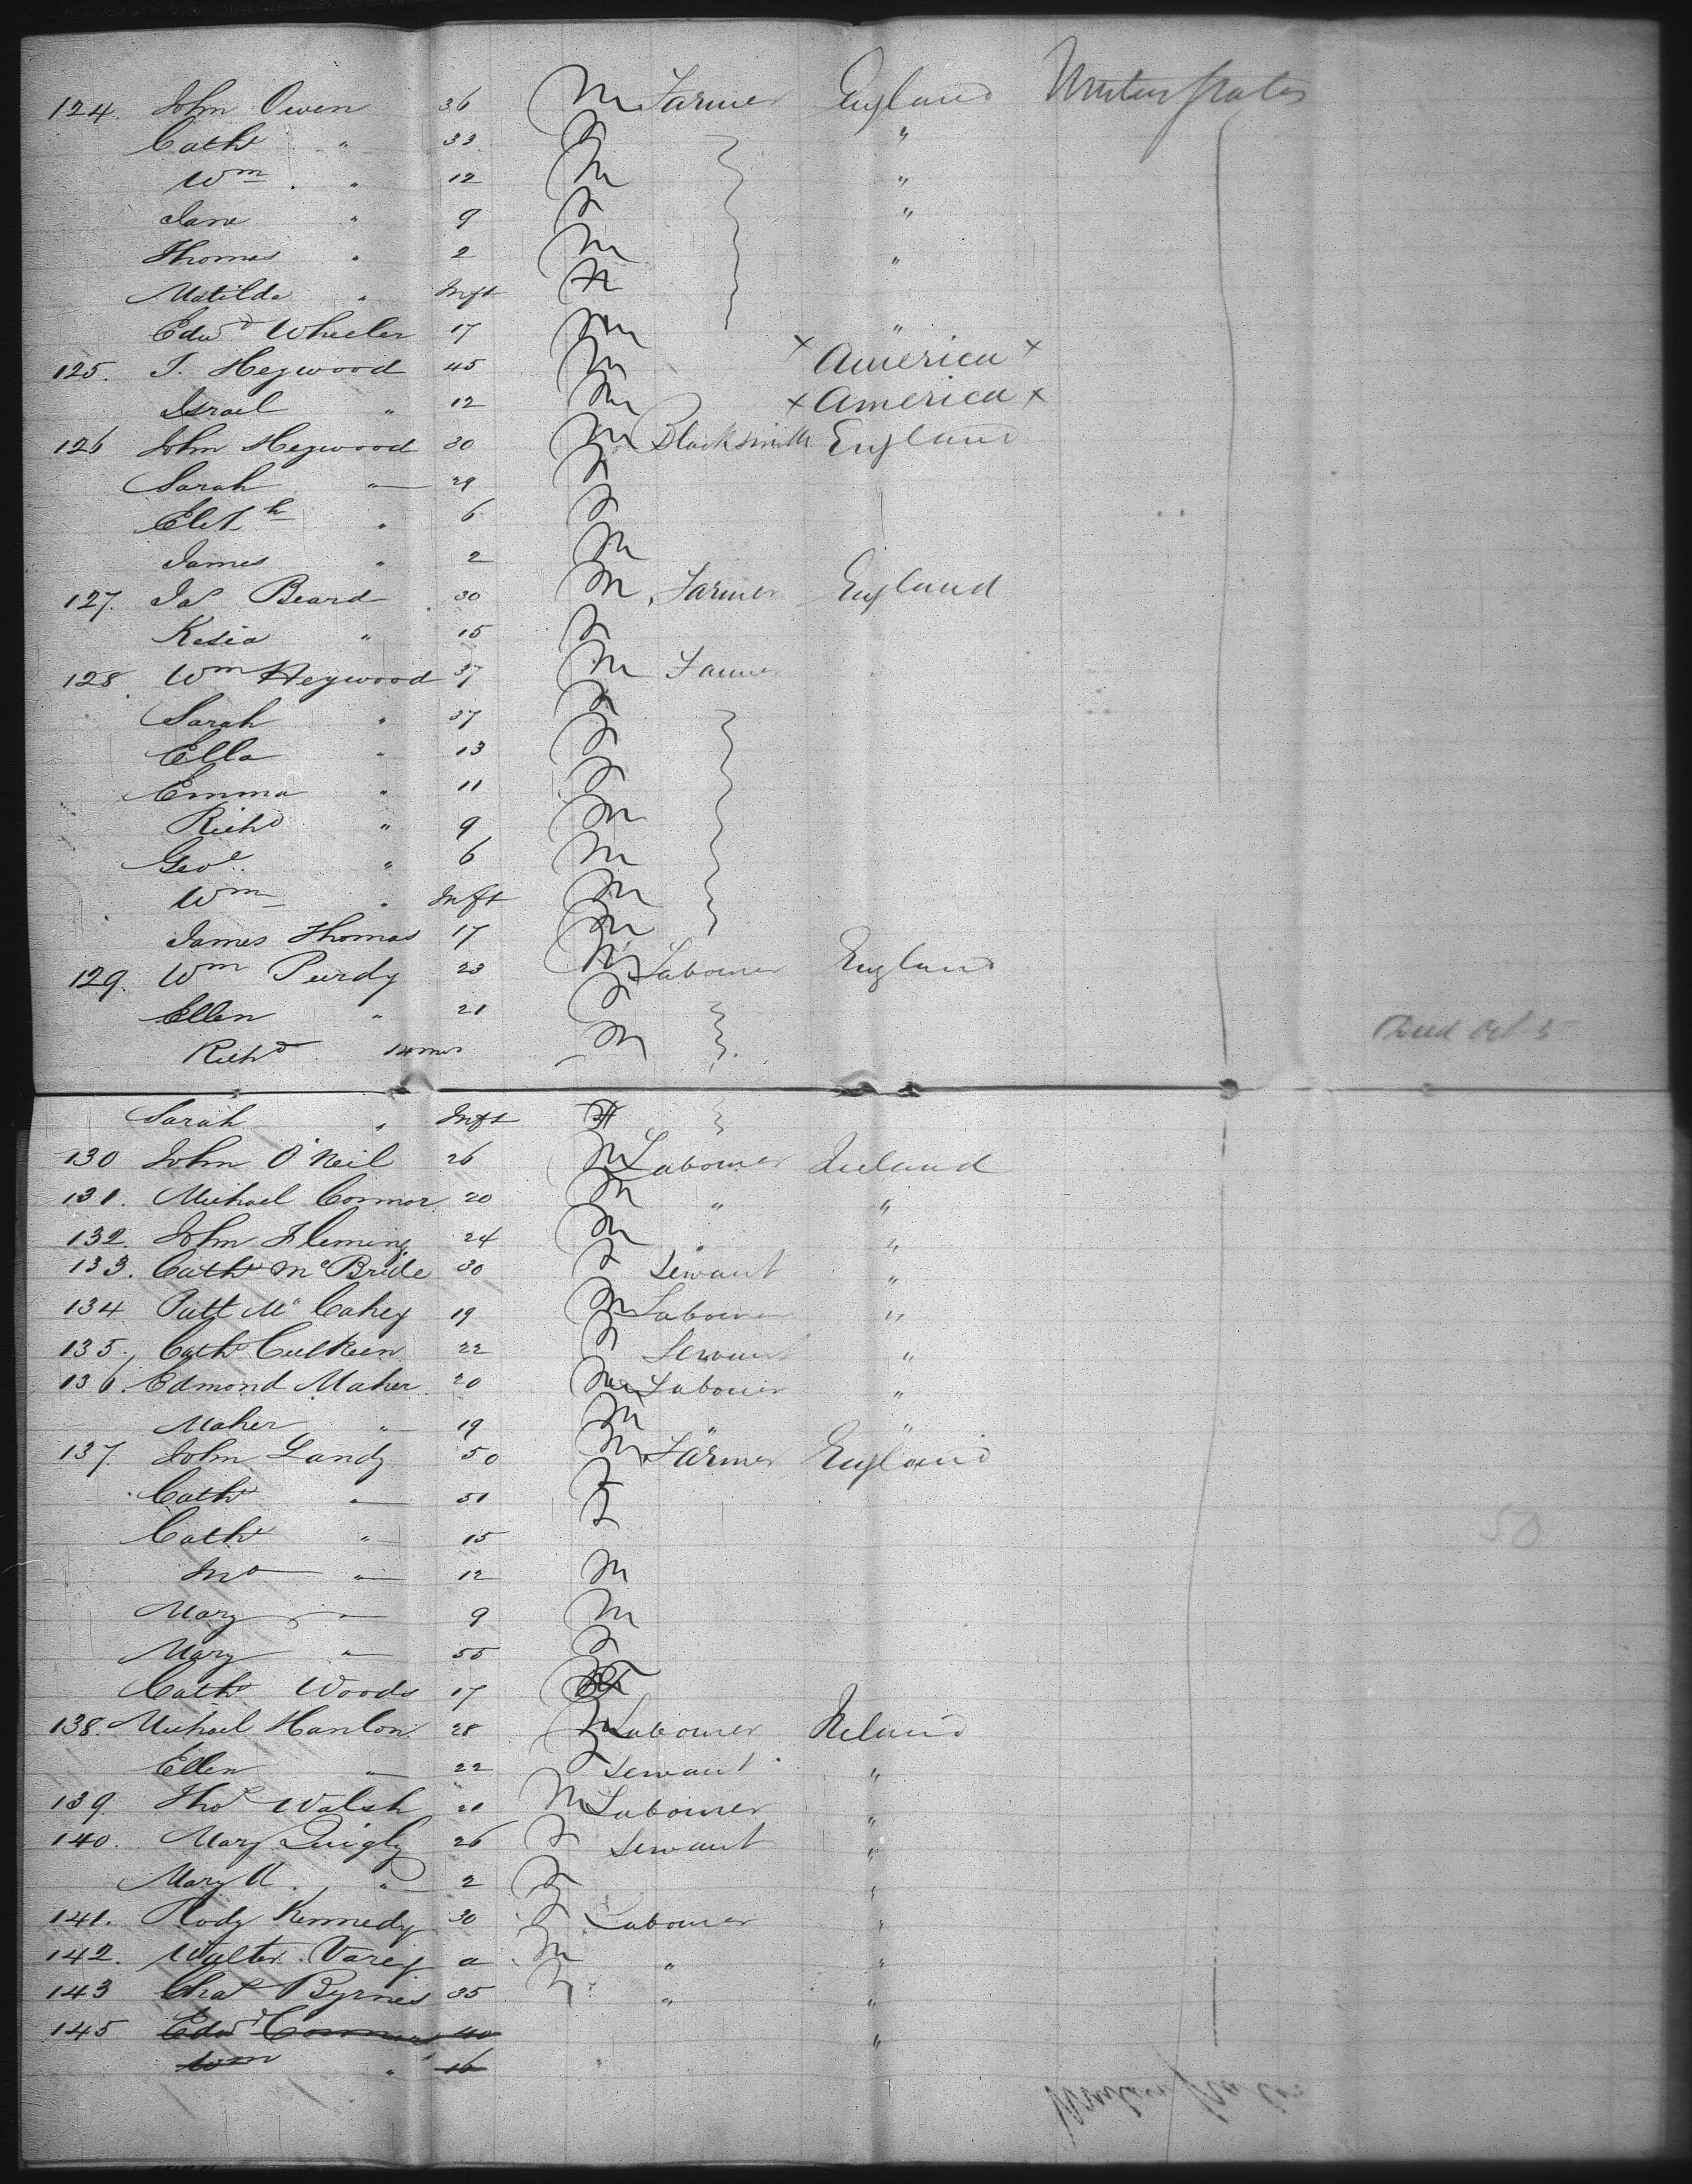 124. John Owen 36 M Farmer England United States
Cath " 33 F "
Wm " 12 M "
Jane " 9 F "
Thomas " 2 M "
Matilda " Inft F
Edwd Wheeler 17 M "
125. T. Heywood 45 M × America ×
Israel " 12 M × America ×
126 John Heywood 30 M Blacksmith England
Sarah " 29 F
Elizth " 6 F
James " 2 M
127. Jas Beard 30 M Farmer England
Kesia " 15 F
128. Wm Heywood 37 M Farmer "
Sarah " 37 F
Ella " 13 F
Emma " 11 F
Richd " 9 M
Geoe " 6 M
Wm " Inft M
James Thomas 17 M
129. Wm Purdy 23 M Labourer England
Ellen " 21 F
Richd 14 mos M Died Oct 5
Sarah " Inft F
130 John O'Neil 26 M Labourer Ireland
131. Michael Connor 20 M " "
132. John Fleming 24 M " "
133. Cath McBride 30 F Servant "
134 Patt McCahey 19 M Labourer "
135. Cath Culkeen 22 F Servant "
136. Edmond Maher 20 M Labourer "
Maher " 19 M " "
137. John Landy 50 M Farmer England
Cath " 51 F
Cath " 15 F
Jno " 12 M
Mary " 9 M
Mary " 55 F
Cath Woods 17 F
138. Michael Hanlon 28 M Labourer Ireland
Ellen " 22 F Servant "
139. Thos Walsh 21 M Labourer "
140. Mary Quigly 26 F Servant "
Mary A. " 2 F "
141. Rody Kennedy 30 F Labourer "
142. Walter Varey a M " "
143 Chas Byrnes 35 M " "
145 Edwd Connors 40 "
Wm " 16
50